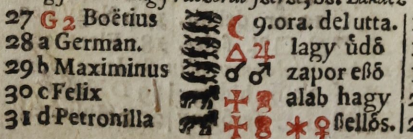 27 G 2 Boëtius ☾ 9. ora. del utta.
28 a German. △ ♃ lagy üdő
29 b Maximinus ☌ ♂ zapor eßő
30 c Felix alab hagy
31 d Petronilla ✶ ♀ ßellős.